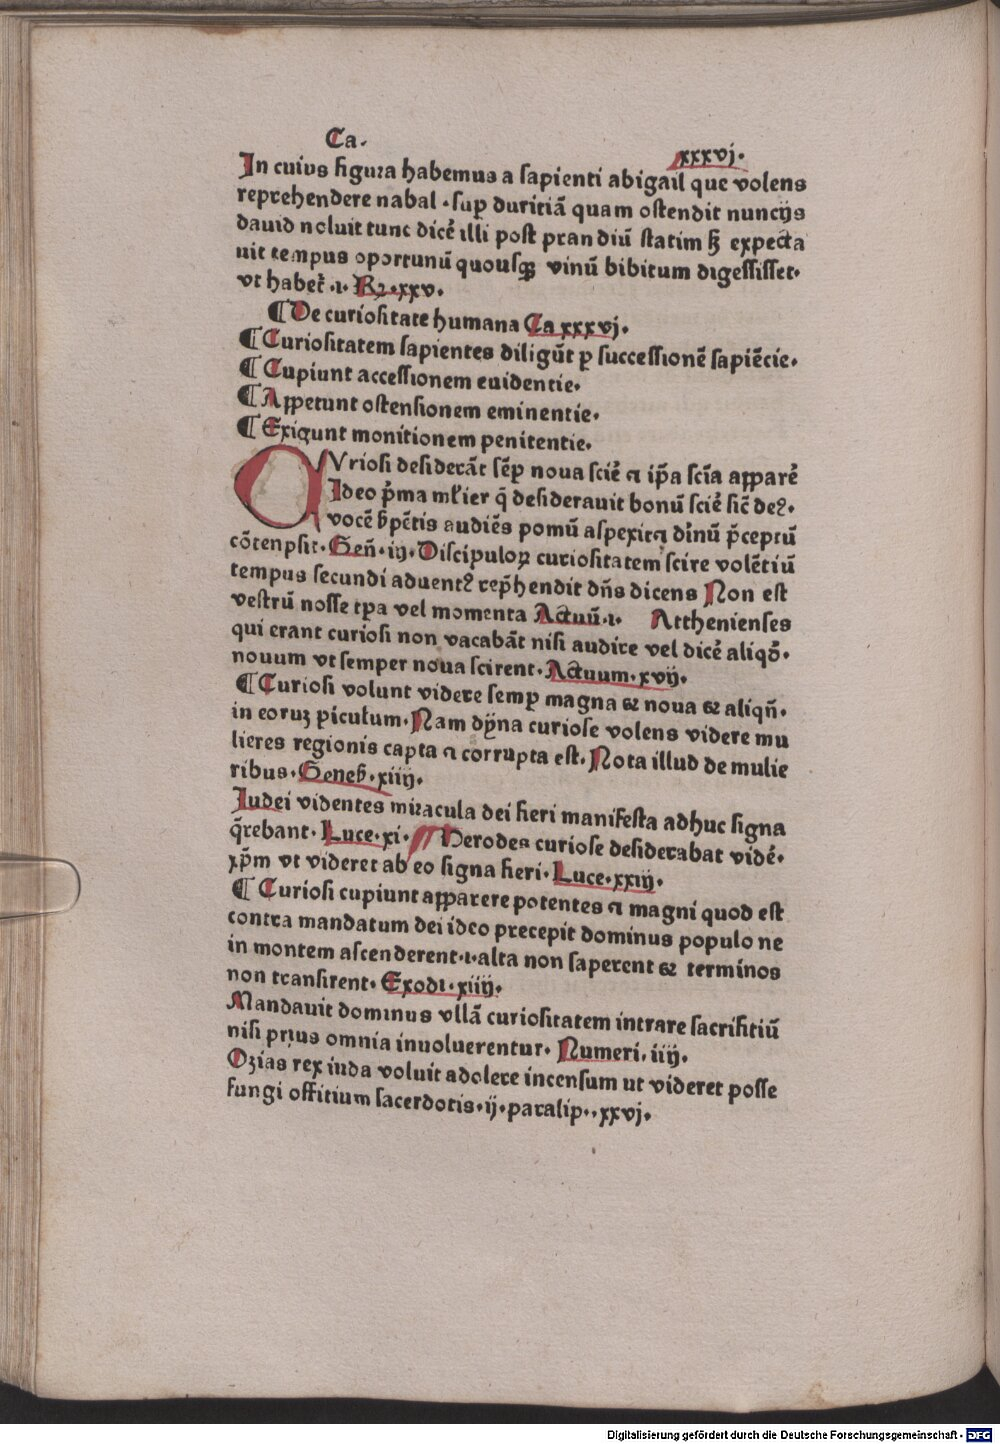 Ca·
xxxvj·
In cuius figura habemus a sapienti abigail que volens
reprehendere nabal · sup duritiā quam ostendit nuncijs
dauid noluit tunc dicē illi post prandiū statim ꝫ expecta
uit tempus oportunū quousqꝫ vinū bibitum digessisset·
vt habet̄ ·1· Rꝫ·xxv·
¶ De curiositate humana Ca xxxvj·
¶ Curiositatem sapientes diligūt p successionē sapiēcie·
¶ Cupiunt accessionem euidentie·
¶ Appetunt ostensionem eminentie·
¶ Exigunt monitionem penitentie·
CVriosi desiderāt sēp noua sciē ⁊ ip̄a scīa apparē
Ideo p̄ma ml̄ier q̄ desiderauit bonū sciē sic̄ deꝰ·
vocē s̄pētis audiēs pomū aspexit ⁊ dīnū p̄ceptū
cōtenpsit· Geñ·iij· Discipuloꝝ curiositatem scire volētiū
tempus secundi aduentꝰ rep̄hendit dn̄s dicens Non est
vestrū nosse tpa vel momenta Actuū·1· Atthenienses
qui erant curiosi non vacabāt nisi audire vel dicē aliqō·
nouum vt semper noua scirent· Actuum·xvij·
¶ Curiosi volunt videre semp magna ⁊ noua ⁊ aliqn̄·
in eoruꝫ piculum· Nam dyna curiose volens videre mu
lieres regionis capta ⁊ corrupta est· Nota illud de mulie
ribus· Geneꝭ·xiiij·
Iudei videntes miracula dei fieri manifesta adhuc signa
q̄rebant· Luce·xi· Herodes curiose desiderabat vidē·
xp̄m vt videret ab eo signa fieri· Luce·xxiij·
¶ Curiosi cupiunt apparere potentes ⁊ magni quod est
contra mandatum dei ideo precepit dominus populo ne
in montem ascenderent·1·alta non saperent ⁊ terminos
non transirent· Exodi·xiiij·
Mandauit dominus vllā curiositatem intrare sacrifitiū
nisi prius omnia inuoluerentur· Numeri·iiij·
Ozias rex iuda voluit adolere incensum ut videret posse
fungi offitium sacerdotis·ij·paralip··xxvj·
Digitalisierung gefördert durch die Deutsche Forschungsgemeinschaft - DFG